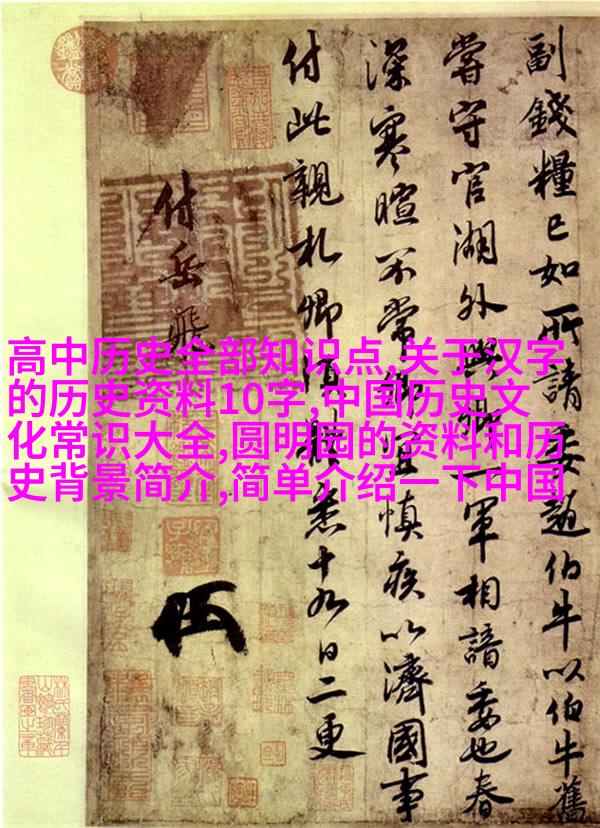 高中历史全部知识点,关于汉字
的历史资料10字,中国历史文
化常识大全,圆明园的资料和历
史背景简介,简单介绍一下中国
副錢糧已如所請委趙伯牛以伯牛舊
嘗守官湖外與卿一軍相諳委也春
深寒暄不常卿宜慎疾以濟國事
付此親札卿須體悉十九日二更
付岳飛